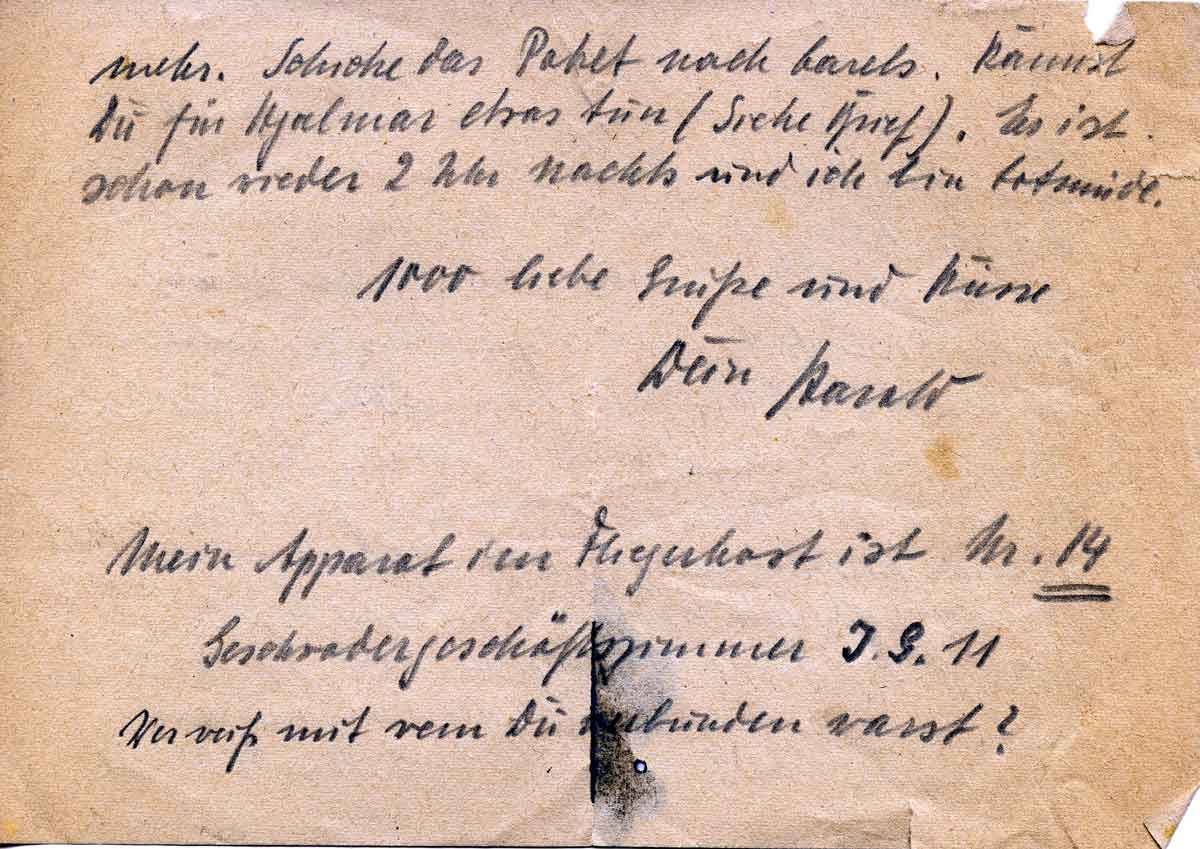 mehr. Schicke das Paket nach barels. Kannst
Du für Hjalmar etwas tun (Siehe Brief). Es ist
schon wieder 2 Uhr Nachts und ich bin totmüde.
1000 liebe Grüße und Küsse
Dein Harald
Mein Apparat im Fliegerhorst ist Nr. 14
Geschwadergeschäftszimmer J.G. 11
Wer weiß mit wem Du verbunden warst?